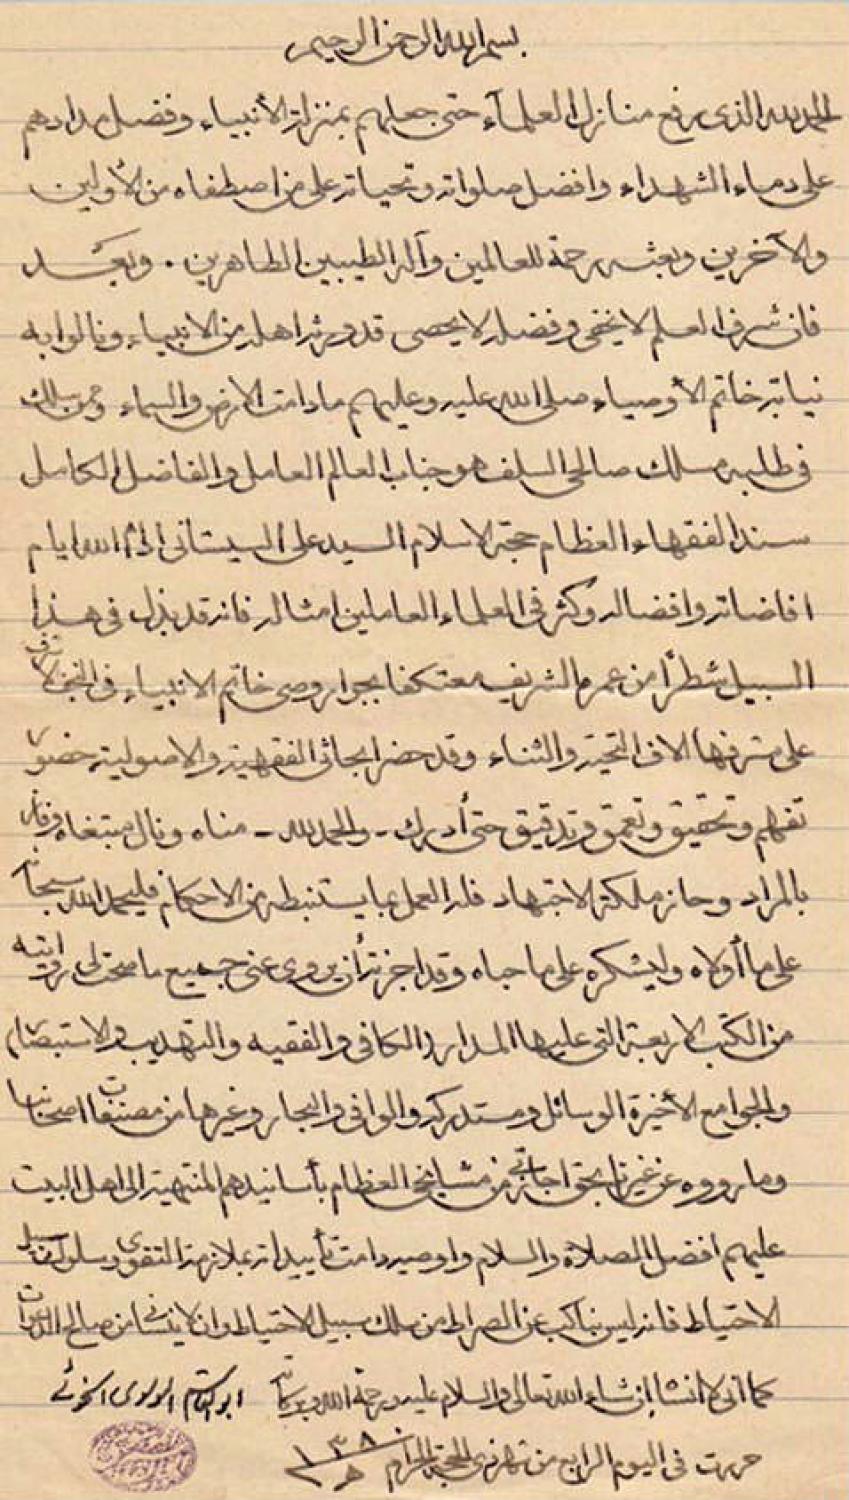 بسم الله الرحمن الرحيم
الحمد لله الذى رفع منازل العلماء حتى جعلهم بمنزلة الأنبياء وفضل مدادهم
على دماء الشهداء وافضل صلواته وتحياته على من اصطفاه من الأولين
والآخرين وبعثه رحمة للعالمين وآله الطيبين الطاهرين . وبعد
فان شرف العلم لا يخفى وفضله لا يحصى قد ورثه اهله من الانبياء ونالوا به
نيابة خاتم الأوصياء صلى الله عليه وعليهم ما دامت الارض والسماء وممن سلك
فى طلبه مسلك صالحى السلف هو جناب العالم العامل والفاضل الكامل
سند الفقهاء العظام حجة الاسلام السيد على السيستانى ادام الله ايام
افاضاته وافضاله وكثر فى العلماء العاملين امثاله فانه قد بذل فى هذا
السبيل شطراً من عمره الشريف معتكفا بجوار وصى خاتم الانبياء فى النجف الاشرف
على مشرفها آلاف التحية والثناء وقد حضر ابحاثى الفقهية والاصولية حضور
تفهم وتحقيق وتعمق وتدقيق حتى أدرك - والحمد لله - مناه ونال مبتغاه وفاز
بالمراد وحاز ملكة الاجتهاد فله العمل بما يستنبطه من الاحكام فليحمد الله سبحانه
على ما أولاه وليشكره على ما حباه وقد اجزته أن يروى عنى جميع ما صحت لى روايته
من الكتب الاربعة التى عليها المدار (الكافى والفقيه والتهذيب والاستبصار)
والجوامع الأخيرة الوسائل ومستدركه والوافى والبحار وغيرها من مصنفات اصحابنا
وما رووه عن غيرنا بحق اجازتى من مشايخى العظام بأسانيدهم المنتهية الى اهل البيت
عليهم افضل الصلاة والسلام واوصيه دامت تأييداته بملازمة التقوى وسلوك سبيل
الاحتياط فانه ليس بناكب عن الصراط من سلك سبيل الاحتياط وان لا ينسانى من صالح الدعوات
كما انى لا انساه إن شاء الله تعالى والسلام عليه ورحمة الله وبركاته ابو القاسم الموسوى الخوئى
حررت فى اليوم الرابع من شهر ذى الحجة الحرام ١٣٨٠ هـ